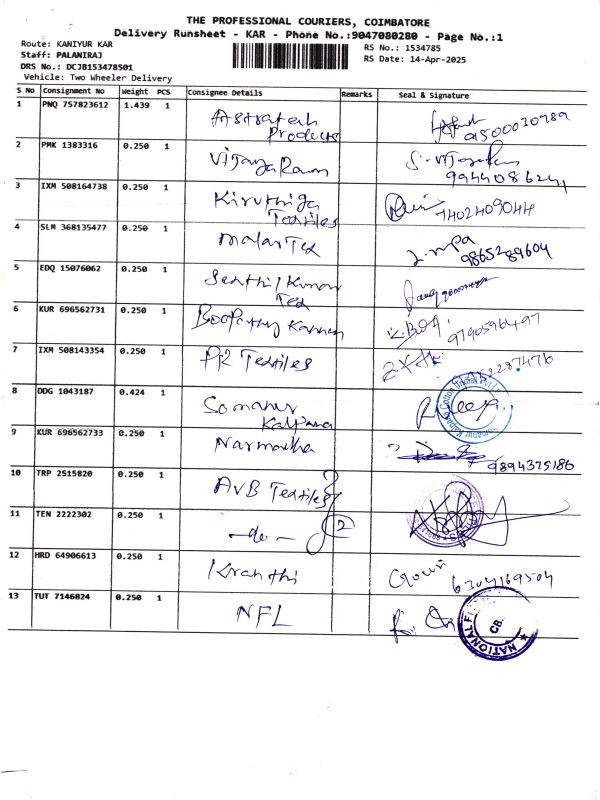 THE PROFESSIONAL COURIERS, COIMBATORE
Delivery Runsheet - KAR - Phone No.:9047080280 - Page No.:1
Route: KANIYUR KAR
Staff: PALANIRAJ
DRS No.: DCJ8153478501
Vehicle: Two Wheeler Delivery
RS No.: 1534785
RS Date: 14-Apr-2025
S No Consignment No Weight PCS Consignee Details Remarks Seal & Signature
1 PNQ 757823612 1.439 1 Products
2 PMK 1383316 0.250 1 Vijaya Ram
3 IXM 508164738 0.250 1 Kiruthiga Textiles 7402409044
4 SLM 368135477 0.250 1 Malar Tex 9865289604
5 EDQ 15076062 0.250 1 Senthil Kumar Tex
6 KUR 696562731 0.250 1 Boopathy Kannan 9790596497
7 IXM 508143354 0.250 1 Textiles
8 DDG 1043187 0.424 1 Somanur Kalpana
9 KUR 696562733 0.250 1 Narmadha 9894375186
10 TRP 2515820 0.250 1 AVB Textiles
11 TEN 2222302 0.250 1 -do- 2
12 HRD 64906613 0.250 1 Kranthi Gowri 6304169504
13 TUT 7146824 0.250 1 NFL NATIONAL F CB